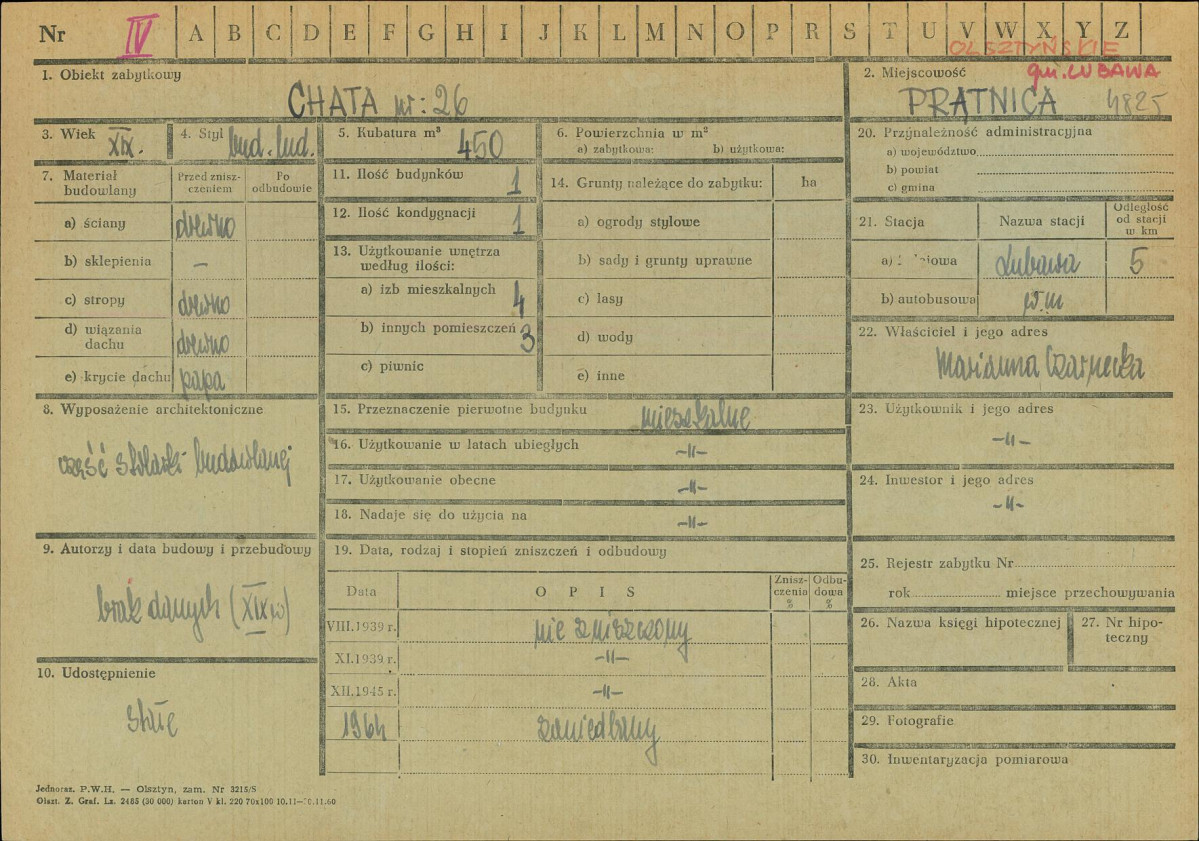 Nr IV A B C D E F G H I J K L M N O P R S T U V W X Y Z
OLSZTYŃSKIE
gm. LUBAWA
1. Obiekt zabytkowy
CHATA nr: 26
2. Miejscowość
PRĄTNICA 4825
3. Wiek XIX.
4. Styl bud. lud.
5. Kubatura m³ 450
6. Powierzchnia w m²
a) zabytkowa: b) użytkowa:
7. Materiał budowlany
Przed znisz-
czeniem
Po
odbudowie
a) ściany drewno
b) sklepienia —
c) stropy drewno
d) wiązania
dachu drewno
e) krycie dachu papa
8. Wyposażenie architektoniczne
część stolarki budowlanej
9. Autorzy i data budowy i przebudowy
brak danych (XIX w)
10. Udostępnienie
stałe
11. Ilość budynków 1
12. Ilość kondygnacji 1
13. Użytkowanie wnętrza
według ilości:
a) izb mieszkalnych 4
b) innych pomieszczeń 3
c) piwnic
14. Grunty należące do zabytku: ha
a) ogrody stylowe
b) sady i grunty uprawne
c) lasy
d) wody
e) inne
15. Przeznaczenie pierwotne budynku mieszkalne
16. Użytkowanie w latach ubiegłych -"-
17. Użytkowanie obecne -"-
18. Nadaje się do użycia na -"-
19. Data, rodzaj i stopień zniszczeń i odbudowy
Data O P I S
Znisz-
czenia
%
Odbu-
dowa
%
VIII.1939 r. nie zniszczony
XI.1939 r. -"-
XII.1945 r. -"-
1964 zaniedbany
20. Przynależność administracyjna
a) województwo
b) powiat
c) gmina
21. Stacja Nazwa stacji
Odległość
od stacji
w km
a) Lubawa 5
b) autobusowa w m
22. Właściciel i jego adres
Marianna Czarnecka
23. Użytkownik i jego adres
-"-
24. Inwestor i jego adres
-"-
25. Rejestr zabytku Nr
rok miejsce przechowywania
26. Nazwa księgi hipotecznej
27. Nr hipo-
teczny
28. Akta
29. Fotografie
30. Inwentaryzacja pomiarowa
Jednoraz. P.W.H. — Olsztyn, zam. Nr 3215/S
Olszt. Z. Graf. Lz. 2485 (30 000) karton V kl. 220 70x100 10.11—10.11.60